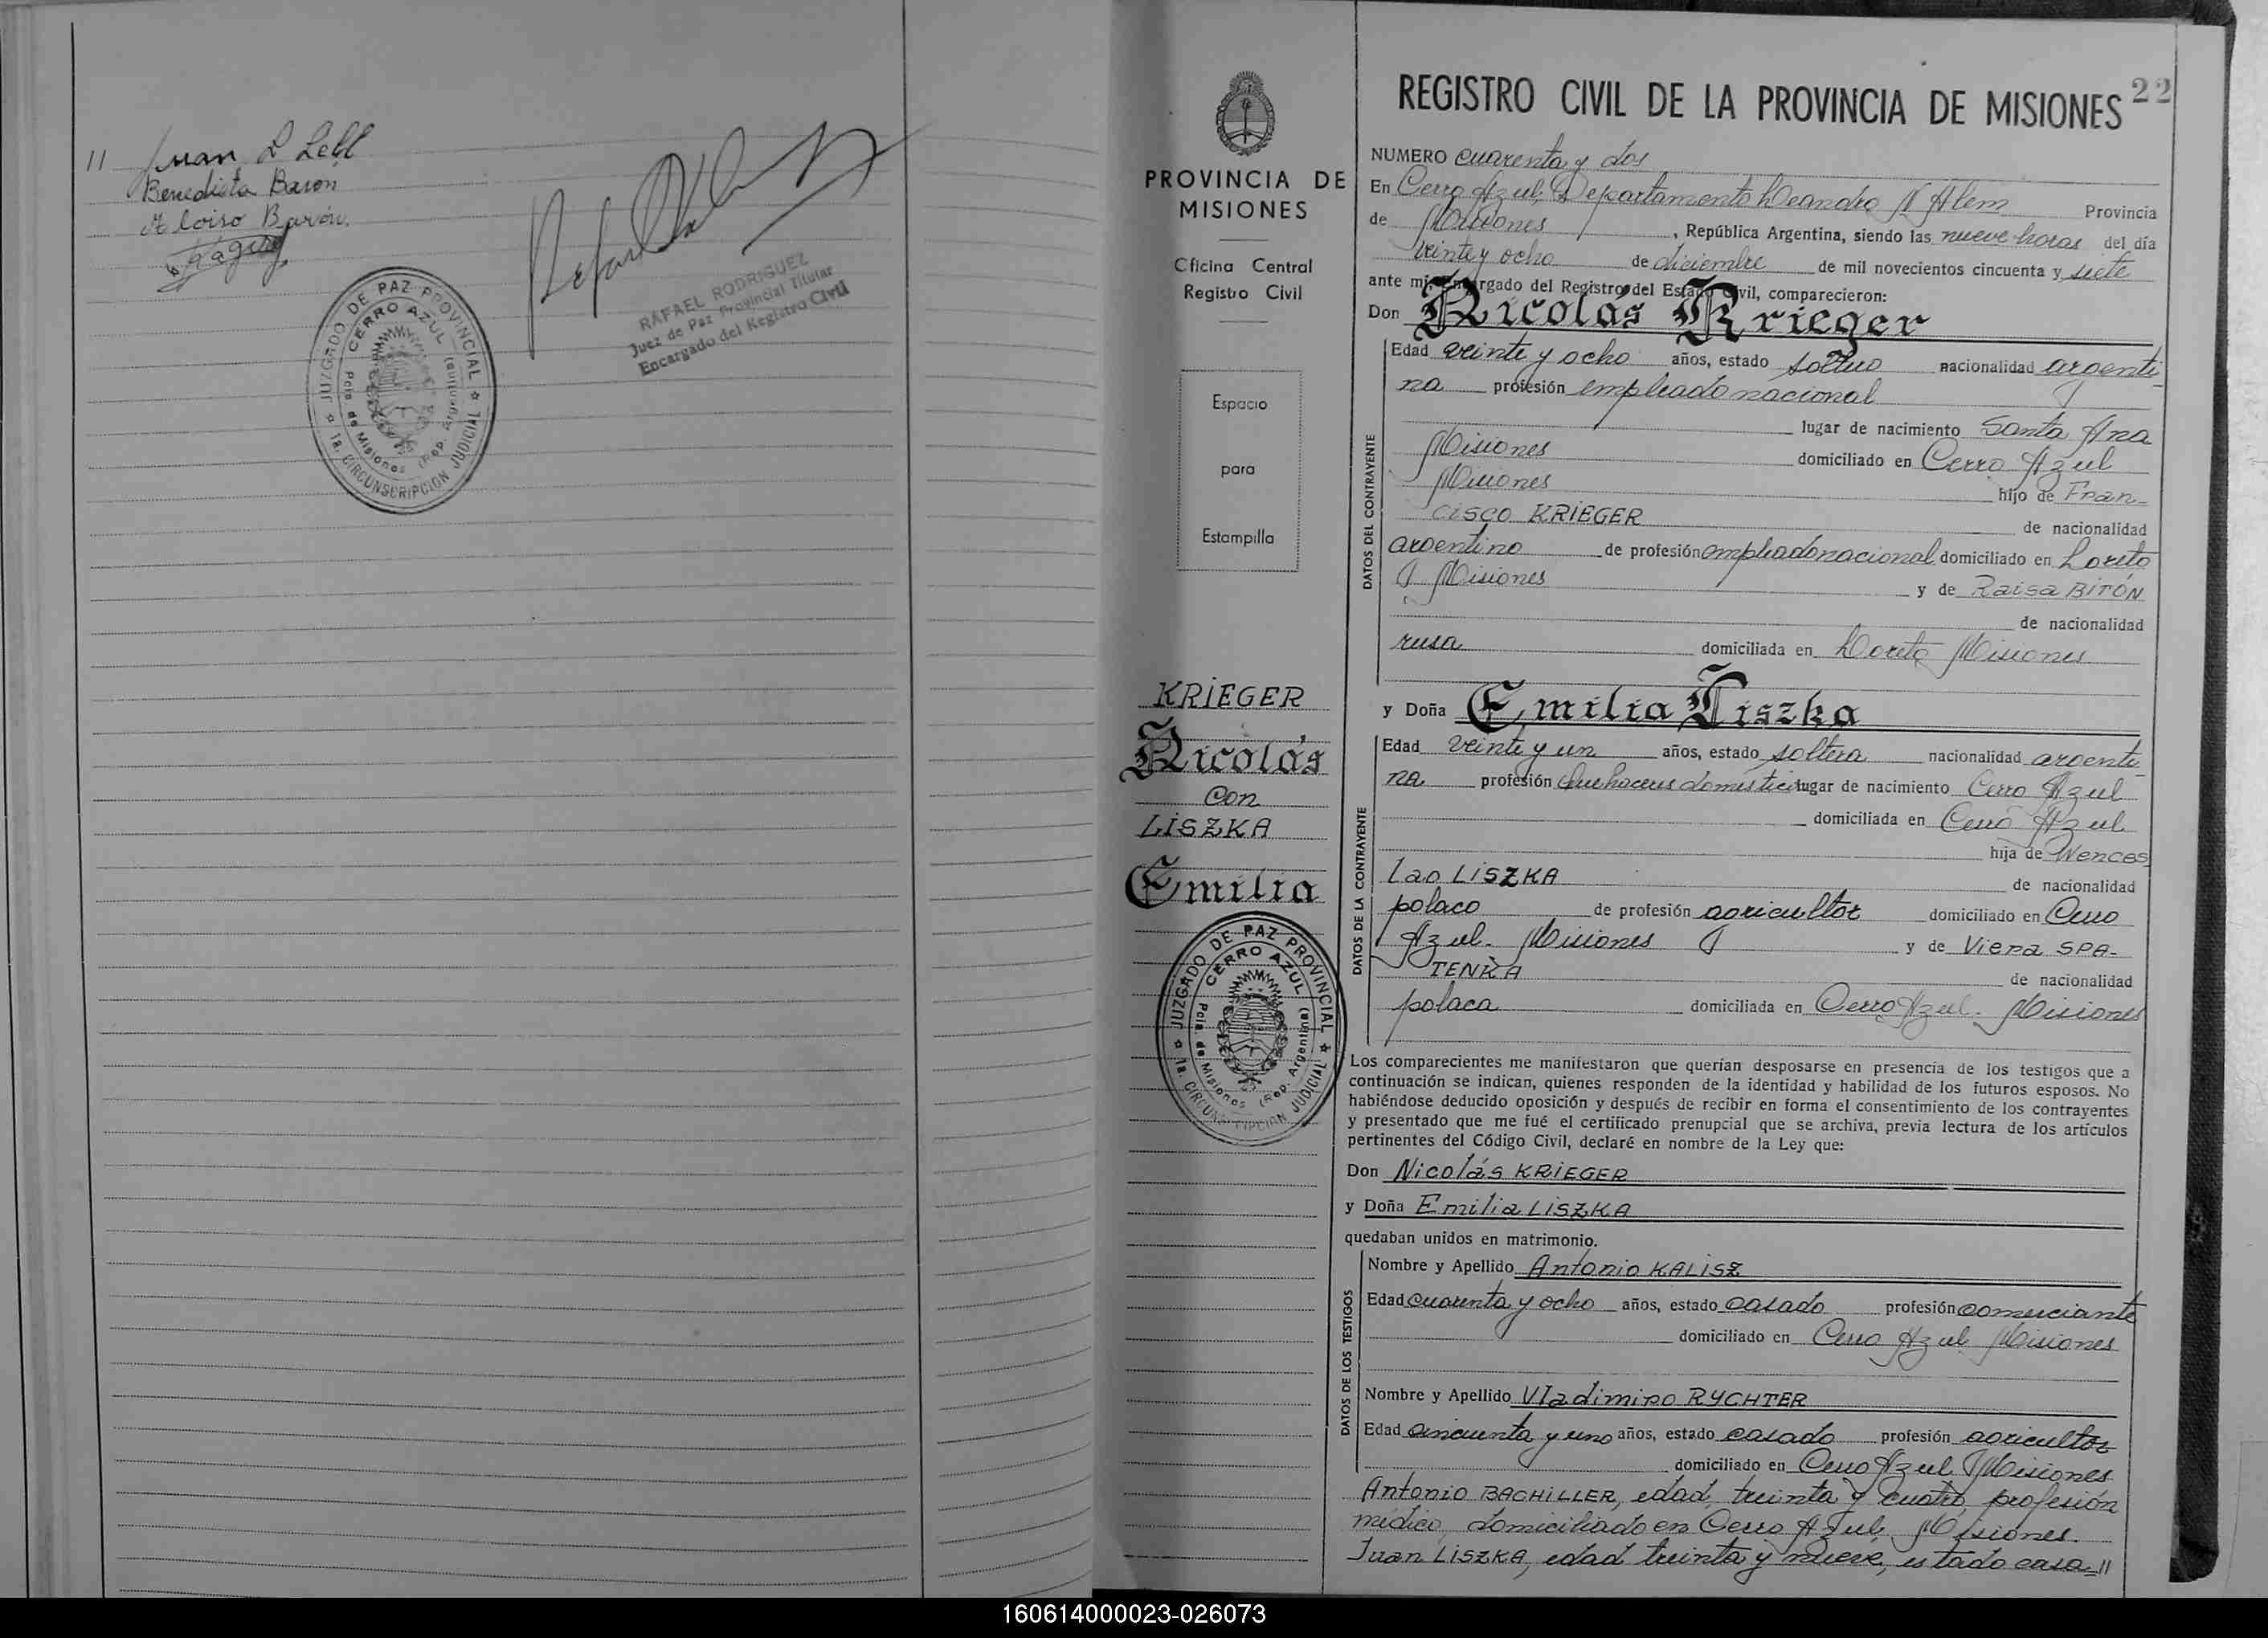 11 Juan L Lebl
Benedicta Baron
Aloiso Barón
JUZGADO DE PAZ PROVINCIAL
CERRO AZUL
Pcia. de Misiones (Rep. Argentina)
1a. CIRCUNSCRIPCION JUDICIAL
RAFAEL RODRIGUEZ
Juez de Paz Provincial Titular
Encargado del Registro Civil
PROVINCIA DE
MISIONES
Oficina Central
Registro Civil
Espacio
para
Estampilla
KRIEGER
Nicolás
con
LISZKA
Emilia
JUZGADO DE PAZ PROVINCIAL
CERRO AZUL
Pcia. de Misiones (Rep. Argentina)
1a. CIRCUNSCRIPCION JUDICIAL
22
REGISTRO CIVIL DE LA PROVINCIA DE MISIONES
NUMERO cuarenta y dos
En Cerro Azul, Departamento Leandro N Alem Provincia
de Misiones, República Argentina, siendo las nueve horas del día
veinte y ocho de diciembre de mil novecientos cincuenta y siete
ante mí, Encargado del Registro del Estado Civil, comparecieron:
Don Nicolás Krieger
DATOS DEL CONTRAYENTE
Edad veinte y ocho años, estado soltero nacionalidad argenti-
na profesión empleado nacional
lugar de nacimiento Santa Ana
Misiones domiciliado en Cerro Azul
Misiones hijo de Fran-
cisco KRIEGER de nacionalidad
argentino de profesión empleado nacional domiciliado en Loreto
Misiones y de Raisa BITÓN
de nacionalidad
rusa domiciliada en Loreto Misiones
y Doña Emilia Liszka
DATOS DE LA CONTRAYENTE
Edad veinte y un años, estado soltera nacionalidad argenti-
na profesión quehaceres domésticos lugar de nacimiento Cerro Azul
domiciliada en Cerro Azul
hija de Wences
lao LISZKA de nacionalidad
polaco de profesión agricultor domiciliado en Cerro
Azul. Misiones y de Viera SPA-
TENKA de nacionalidad
polaca domiciliada en Cerro Azul. Misiones
Los comparecientes me manifestaron que querían desposarse en presencia de los testigos que a
continuación se indican, quienes responden de la identidad y habilidad de los futuros esposos. No
habiéndose deducido oposición y después de recibir en forma el consentimiento de los contrayentes
y presentado que me fué el certificado prenupcial que se archiva, previa lectura de los artículos
pertinentes del Código Civil, declaré en nombre de la Ley que:
Don Nicolás KRIEGER
y Doña Emilia LISZKA
quedaban unidos en matrimonio.
DATOS DE LOS TESTIGOS
Nombre y Apellido Antonio KALISZ
Edad cuarenta y ocho años, estado casado profesión comerciante
domiciliado en Cerro Azul Misiones
Nombre y Apellido Vladimiro RYCHTER
Edad cincuenta y uno años, estado casado profesión agricultor
domiciliado en Cerro Azul Misiones
Antonio BACHILLER, edad, treinta y cuatro, profesión
médico, domiciliado en Cerro Azul, Misiones.
Juan LISZKA, edad treinta y nueve, estado casa=11
160614000023-026073